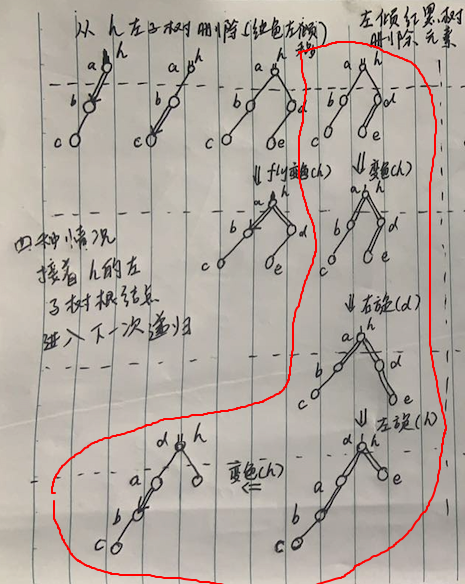 从 h 左子树删除(红色左倾
左倾红黑树
删除元素
a h
b
c
a h
b
c
a h
b d
c e
a h
b d
c e
⇓ fly变色(h)
⇓ 变色(h)
a h
b d
c e
a h
b d
c e
四种情况
接着 h 的左
子树根结点
进入下一次递归
⇓ 右旋(d)
a h
b d
c e
⇓ 左旋(h)
d h
a
b
c
变色(h)
⇐
d h
a e
b
c